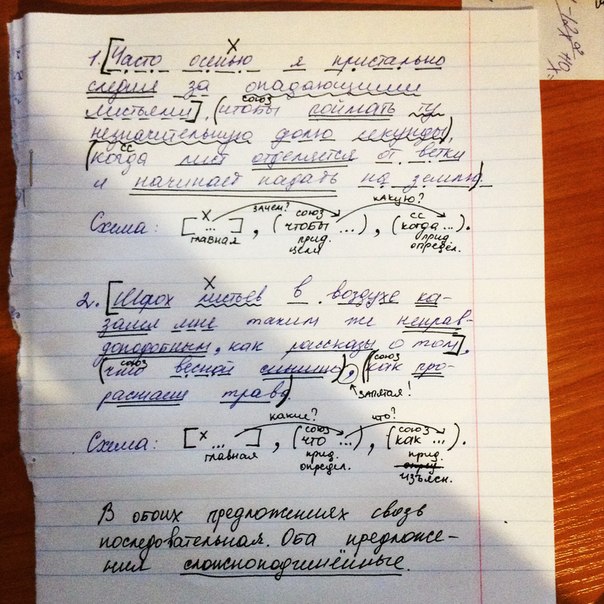 1. [Часто осенью я пристально
следил за опадающими
листьями], (чтобы поймать ту
союз
незначительную долю секунды),
сс
(когда лист отделяется от ветки
и начинает падать на землю).
Схема: [ х ... ] главная, зачем? (союз чтобы ...) прид. цели, какую? (сс когда ...) прид. определ.
х
2. [Шорох листьев в воздухе ка-
зался мне таким же неправ-
доподобным, как рассказы о том],
союз союз
(что весной слышно), (как про-
растает трава)
запятая!
Схема: [ х ... ] главная, какие? (союз что ...) прид. определ., что? (союз как ...) прид. опред изъясн.
В обоих предложениях связь
последовательная. Оба предложе-
ния сложноподчинённые.